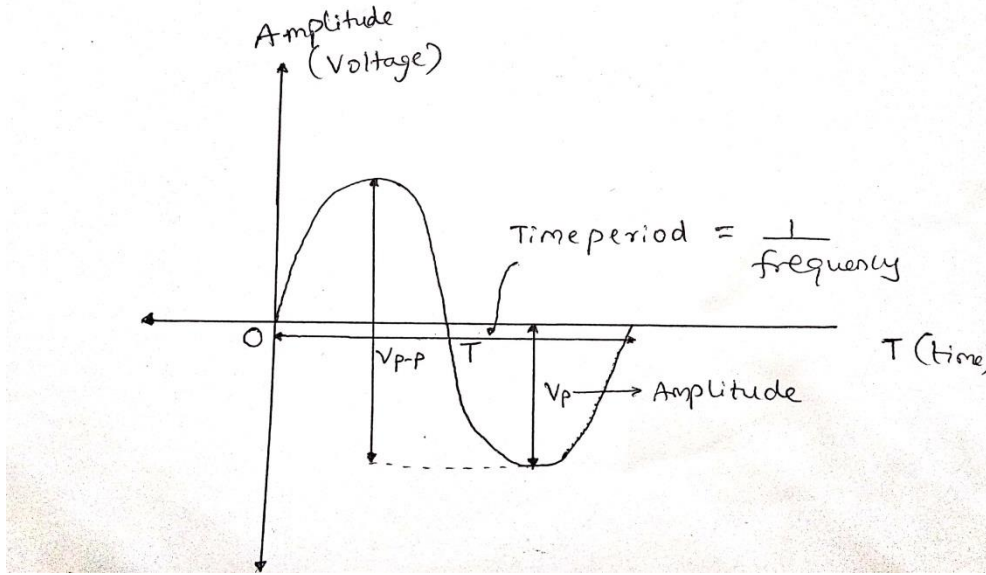 Amplitude
(Voltage)
Timeperiod = 1
frequency
O
Vp-p
T
T (time,
Vp → Amplitude